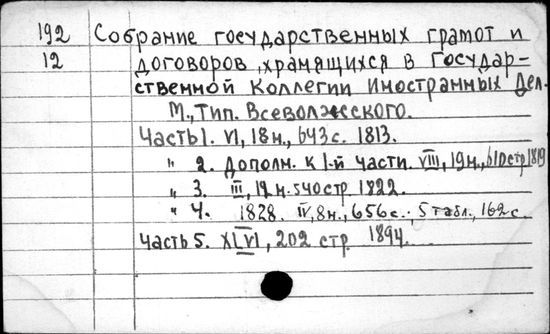 192 Собрание государственных грамот и
12 договоров, хранящихся в Государ-
ственной Коллегии Иностранных Дел.
М., Тип. Всеволжского.
Часть 1. VI, 18 н., 643 с. 1813.
" 2. Дополн. к 1-й части. VIII, 19 н., 610 стр 1819
" 3. III, 12 н. 540 стр 1822.
" 4. 1828. IV, 8 н., 656 с. 5 табл., 162 с.
Часть 5. XLVI, 202 стр. 1894.